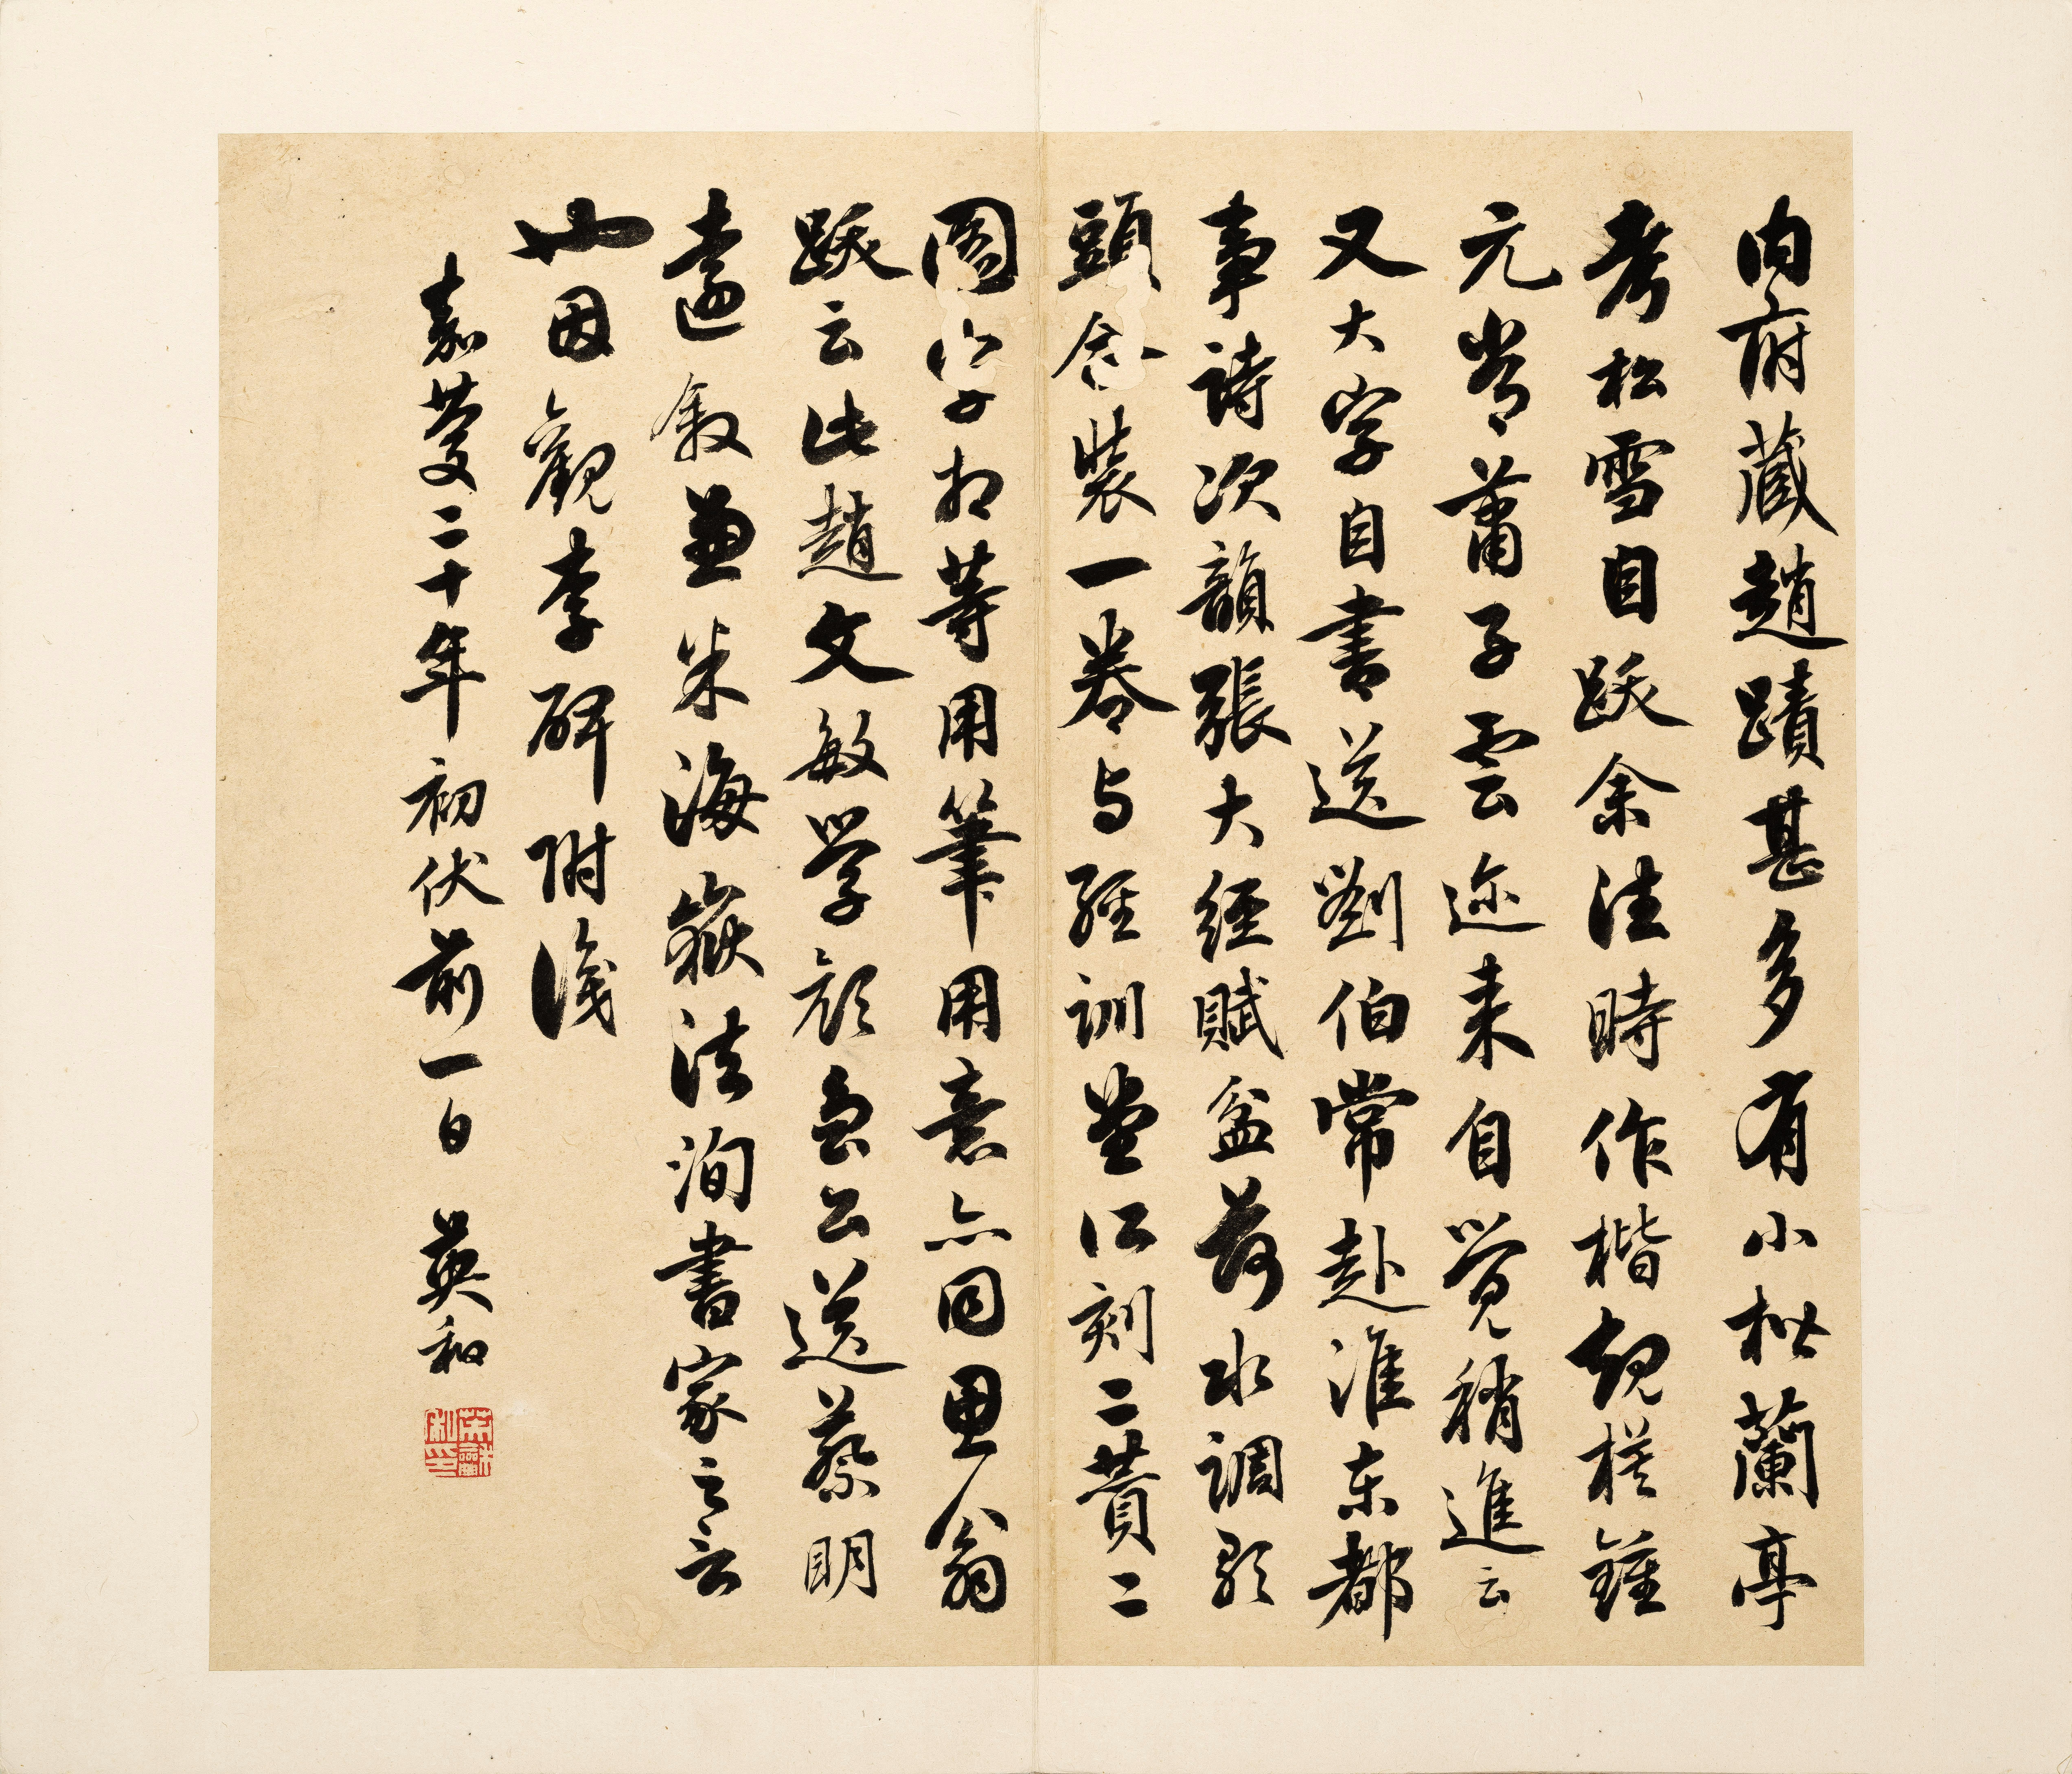 内府藏趙蹟甚多有小楷蘭亭
考松雪自跋余法時作楷規橅鍾
元常蕭子雲迹来自覺稍進云
又大字自書送劉伯常赴淮东都
事詩次韻張大經賦盆荷水調歌
頭合裝一卷与經訓堂江刻二贊二
圖字相等用筆用意亦同思翁
跋云此趙文敏學顔魯公送蔡明
遠敘兼米海嶽法洵書家之言
也因觀李碑附識
嘉慶二十年初伏前一日 英和